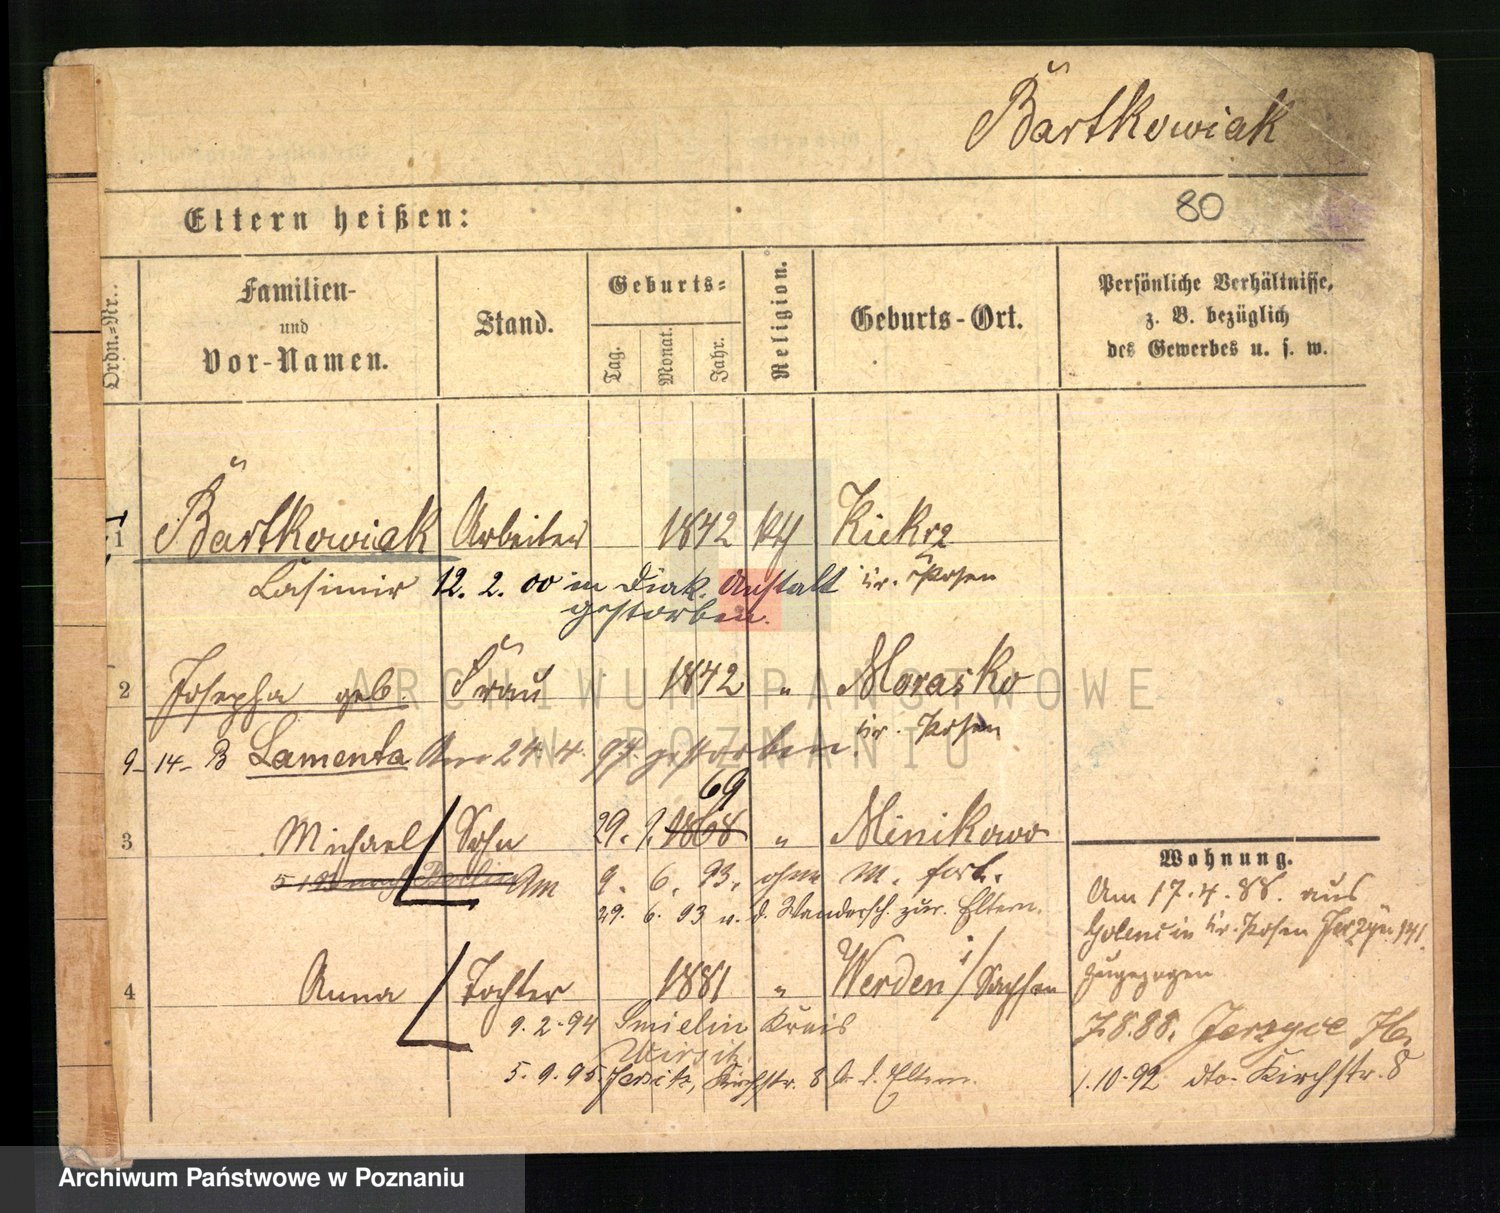 Bartkowiak
80
Eltern heißen:
Ordn.-Nr.
Familien-
und
Vor-Namen.
Stand.
Geburts-
Tag.
Monat.
Jahr.
Religion.
Geburts-Ort.
Persönliche Verhältnisse,
z. B. bezüglich
des Gewerbes u. s. w.
1 Bartkowiak Arbeiter 1842 kth Kiekrz
Casimir 12. 2. 00 in Diak. Anstalt Kr. Posen
gestorben.
2 Josepha geb. Frau 1842 " Morasko
Kr. Posen
9-14- B Lamenta Am 24.4. 97. gestorben.
69
3 Michael Sohn 29. 9. 1868 " Minikowo
Am 9. 6. 93. ohne M. fort.
29. 6. 93 v. d. Wandersch. zur. Eltern.
4 Anna Tochter 1881 " Werden i/Sachsen
9. 2. 94 Smielin Kreis
Wirsitz
5. 9. 95 Jersitz, Kirchstr. 8 b. d. Eltern.
Wohnung.
Am 17.4.88. aus
Golencin Kr. Posen
zugezogen
7.8.88. Jerzyce
1.10.92 dto. Kirchstr. 8
ARCHIWUM PAŃSTWOWE
W POZNANIU
Archiwum Państwowe w Poznaniu